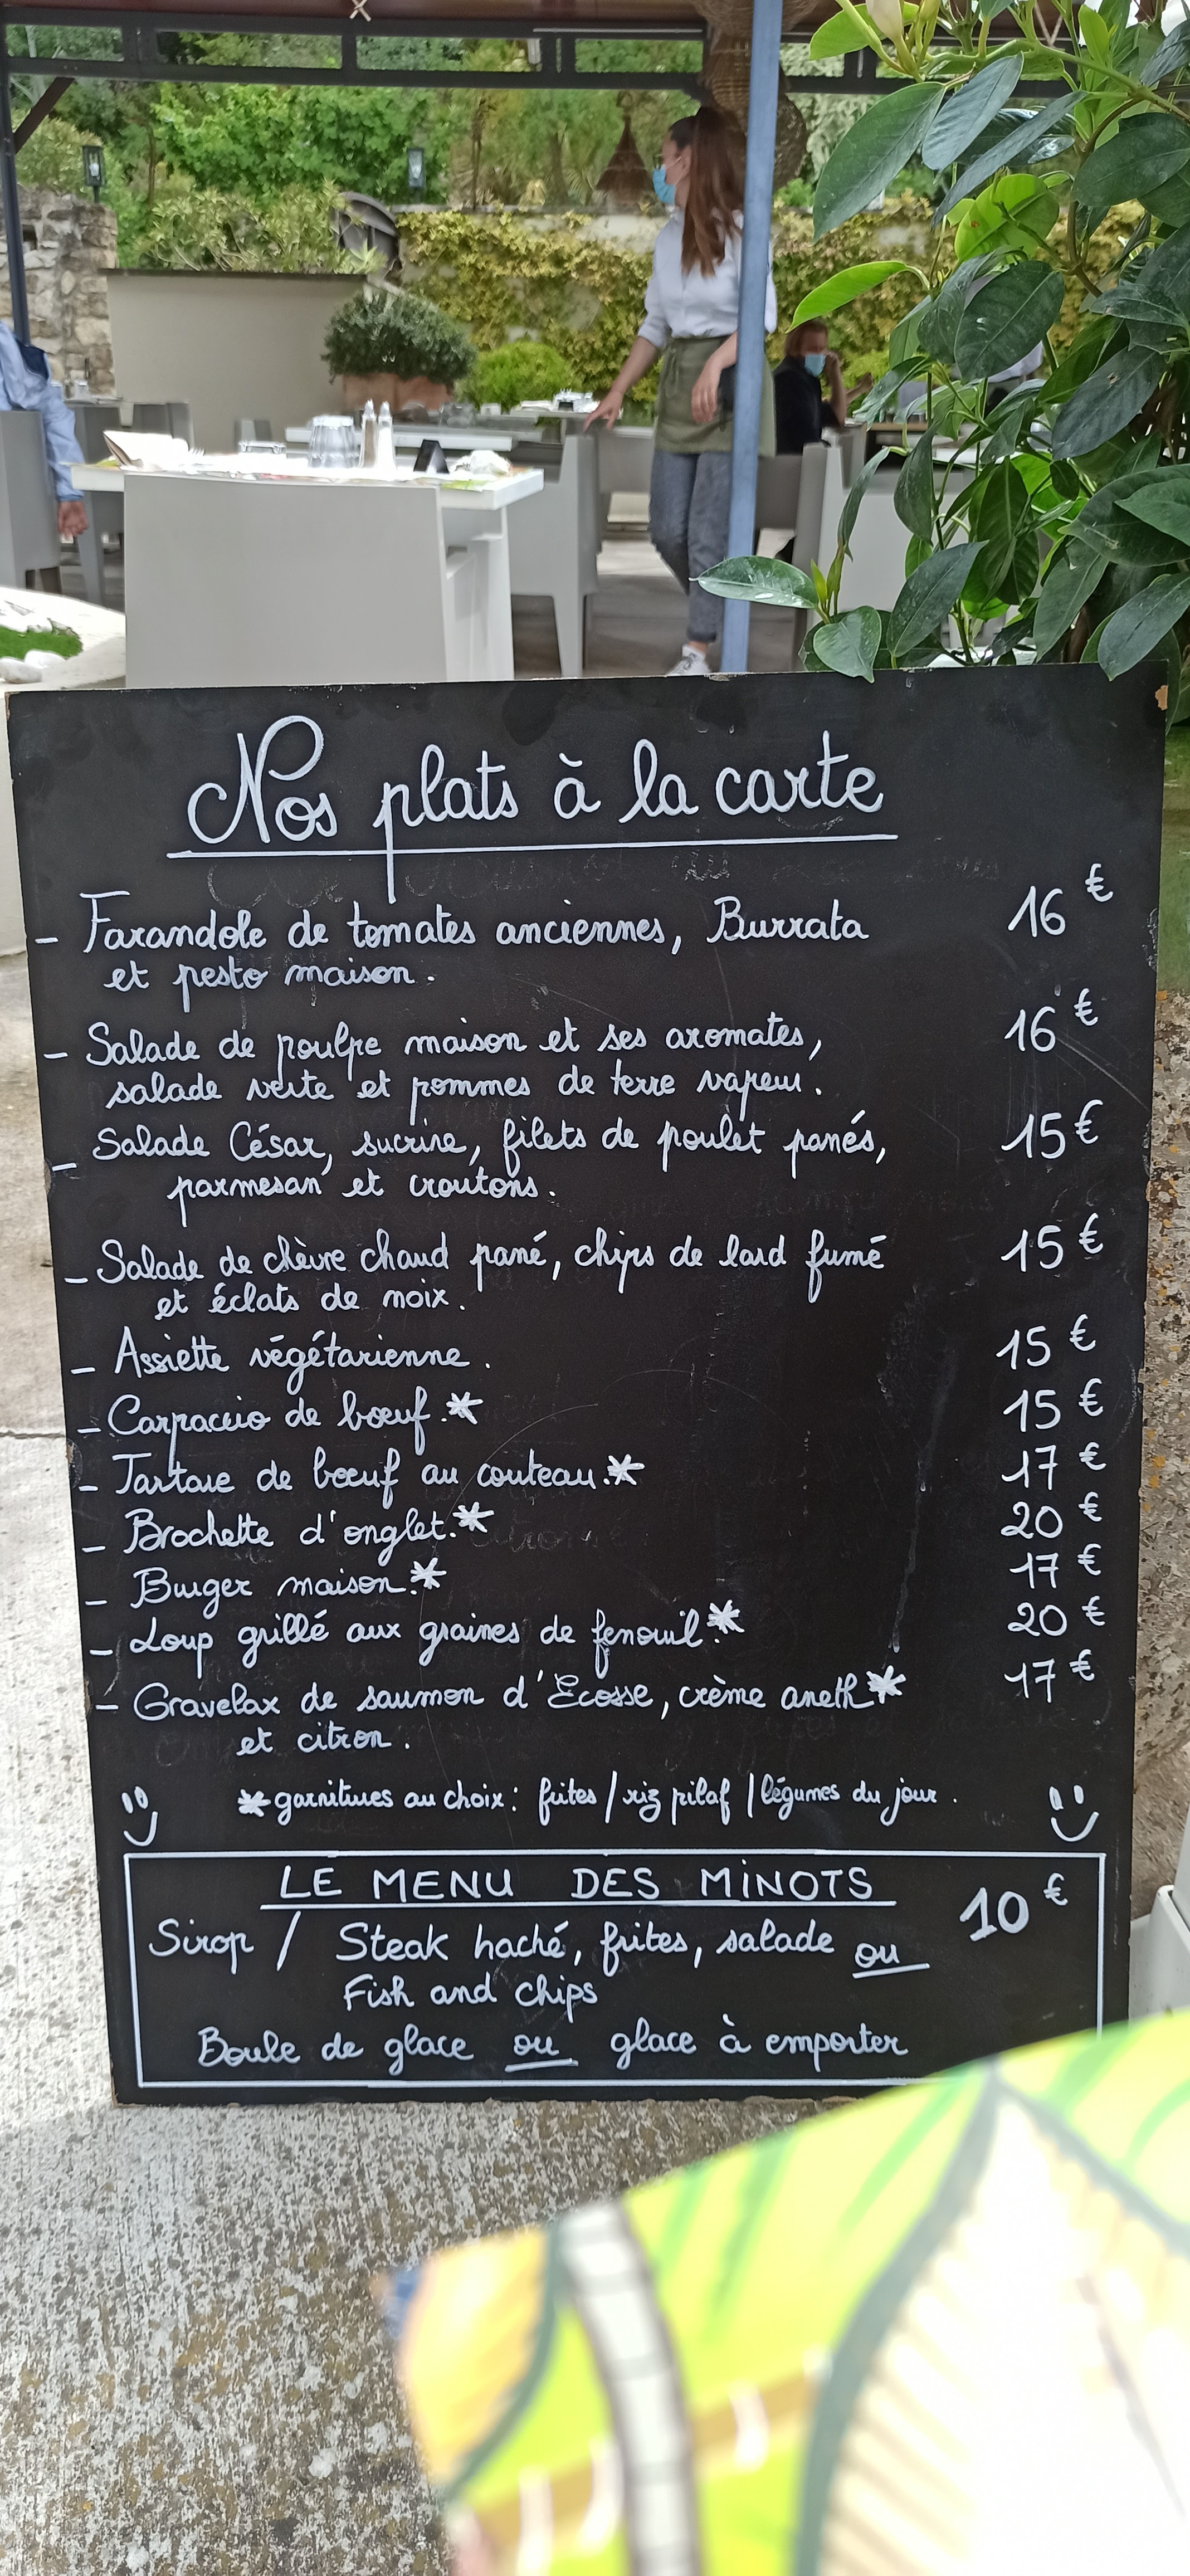 Nos plats à la carte
- Farandole de tomates anciennes, Burrata 16 €
et pesto maison.
- Salade de poulpe maison et ses aromates, 16 €
salade verte et pommes de terre vapeur.
- Salade César, sucrine, filets de poulet panés, 15 €
parmesan et croutons.
- Salade de chèvre chaud pané, chips de lard fumé 15 €
et éclats de noix.
- Assiette végétarienne. 15 €
- Carpaccio de bœuf.* 15 €
- Tartare de bœuf au couteau.* 17 €
- Brochette d'onglet.* 20 €
- Burger maison.* 17 €
- Loup grillé aux graines de fenouil.* 20 €
- Gravelax de saumon d'Ecosse, crème aneth* 17 €
et citron.
* garnitures au choix : frites / riz pilaf / légumes du jour.
LE MENU DES MINOTS 10 €
Sirop / Steak haché, frites, salade ou
Fish and chips
Boule de glace ou glace à emporter